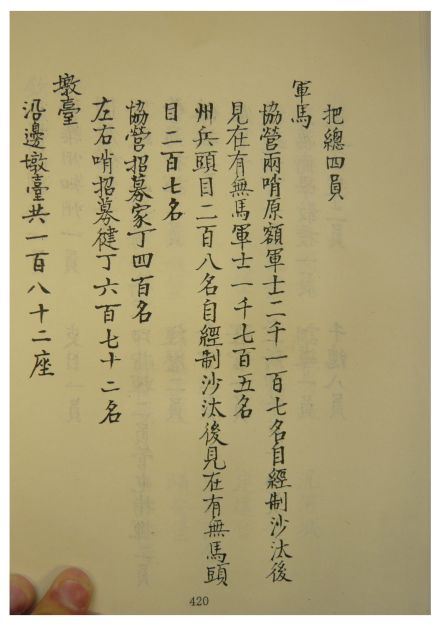 把總四員
軍馬
協營兩哨原額軍士二千一百七名自經制沙汰後
見在有無馬軍士一千七百五名
州兵頭目二百八名自經制沙汰後見在有無馬頭
目二百七名
協營招募家丁四百名
左右哨招募健丁六百七十二名
墩臺
沿邊墩臺共一百八十二座
420